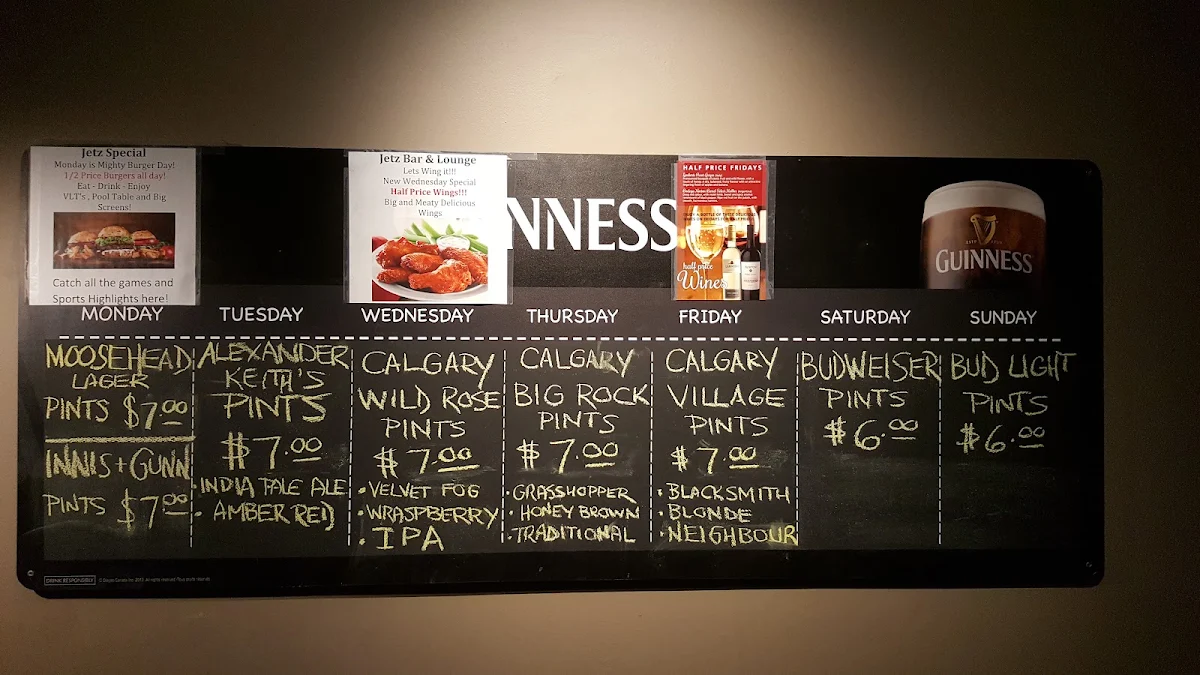 Jetz Special
Monday is Mighty Burger Day!
1/2 Price Burgers all day!
Eat - Drink - Enjoy
VLT's, Pool Table and Big
Screens!
Catch all the games and
Sports Highlights here!
Jetz Bar & Lounge
Lets Wing it!!!
New Wednesday Special
Half Price Wings!!!
Big and Meaty Delicious
Wings
NNESS
HALF PRICE FRIDAYS
half price
Wines
GUINNESS
MONDAY
MOOSEHEAD
LAGER
PINTS $7.00
INNIS + GUNN
PINTS $7.00
TUESDAY
ALEXANDER
KEITH'S
PINTS
$7.00
• INDIA PALE ALE
• AMBER RED
WEDNESDAY
CALGARY
WILD ROSE
PINTS
$7.00
• VELVET FOG
• WRASPBERRY
• IPA
THURSDAY
CALGARY
BIG ROCK
PINTS
$7.00
• GRASSHOPPER
• HONEY BROWN
• TRADITIONAL
FRIDAY
CALGARY
VILLAGE
PINTS
$7.00
• BLACKSMITH
• BLONDE
• NEIGHBOUR
SATURDAY
BUDWEISER
PINTS
$6.00
SUNDAY
BUD LIGHT
PINTS
$6.00
DRINK RESPONSIBLY